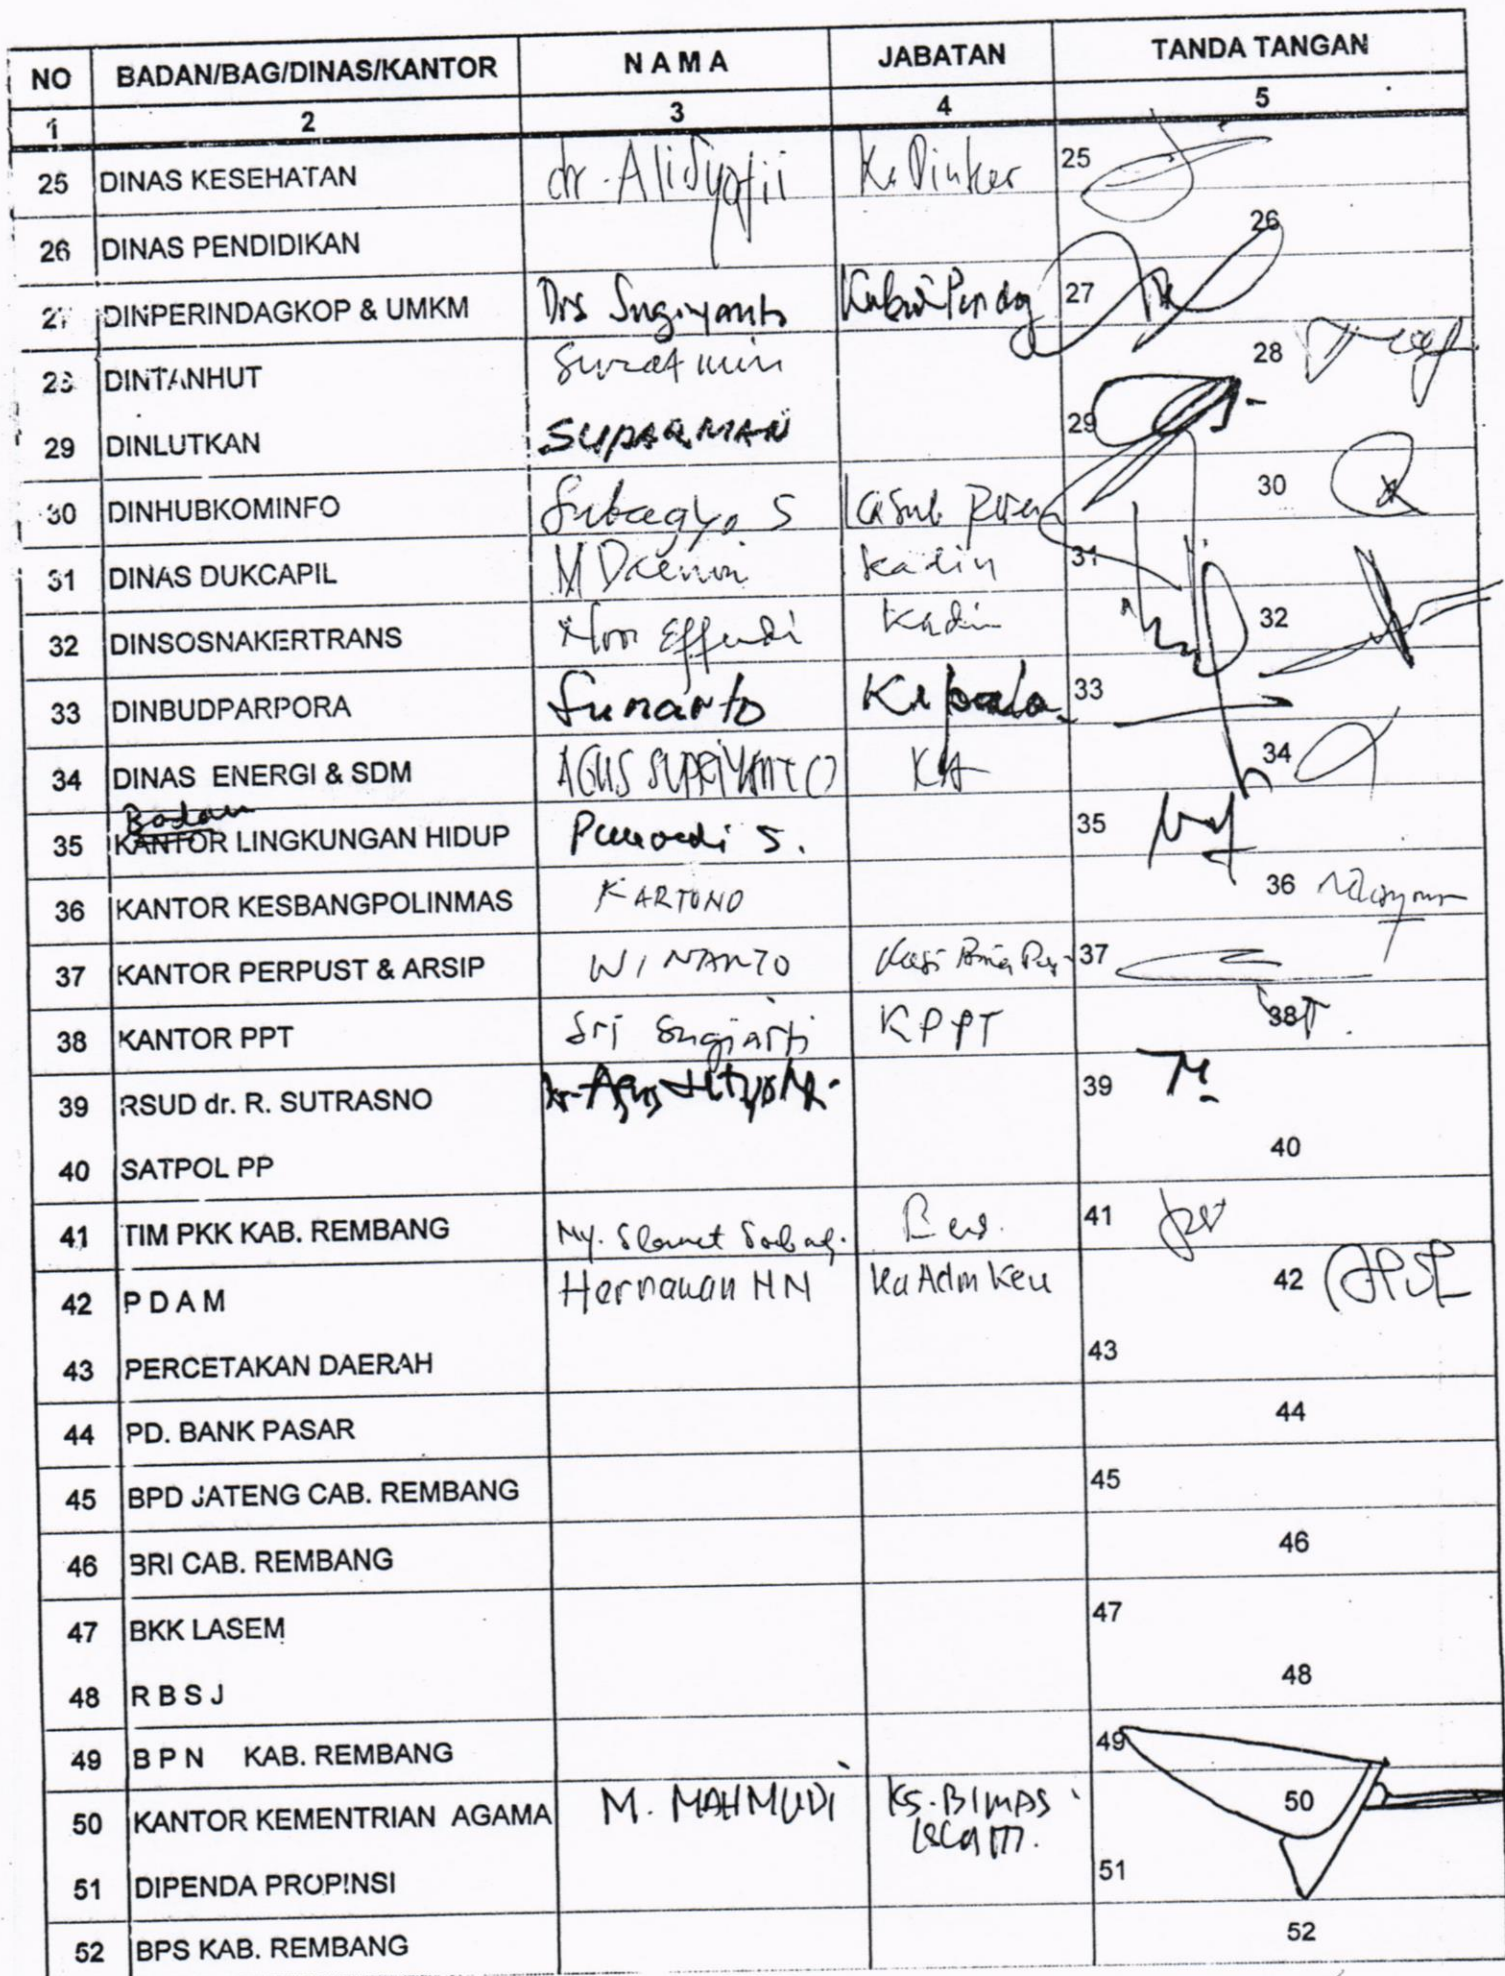 NO BADAN/BAG/DINAS/KANTOR N A M A JABATAN TANDA TANGAN
1 2 3 4 5
25 DINAS KESEHATAN dr. Ali Syofii Ka Dinkes 25
26 DINAS PENDIDIKAN 26
27 DINPERINDAGKOP & UMKM Drs Sugiyanto 27
28 DINTANHUT Suratmin 28
29 DINLUTKAN SUPARMAN 29
30 DINHUBKOMINFO Subagyo S Kasub 30
31 DINAS DUKCAPIL M Daenuri Kadin 31
32 DINSOSNAKERTRANS Noor Effendi Kadin 32
33 DINBUDPARPORA Sunarto Kepala 33
34 DINAS ENERGI & SDM AGUS SUPRIYANTO KA 34
Badan
35 KANTOR LINGKUNGAN HIDUP Purwadi S. 35
36 KANTOR KESBANGPOLINMAS KARTONO 36
37 KANTOR PERPUST & ARSIP WINARTO Kasi Bina 37
38 KANTOR PPT Sri Sugiarti KPPT 38
39 RSUD dr. R. SUTRASNO dr. Agus 39
40 SATPOL PP 40
41 TIM PKK KAB. REMBANG Ny. Slamet 41
42 P D A M Hernawan HN Ka Adm Keu 42
43 PERCETAKAN DAERAH 43
44 PD. BANK PASAR 44
45 BPD JATENG CAB. REMBANG 45
46 BRI CAB. REMBANG 46
47 BKK LASEM 47
48 R B S J 48
49 B P N KAB. REMBANG 49
50 KANTOR KEMENTRIAN AGAMA M. MAHMUDI KS. BIMAS 50
Islam.
51 DIPENDA PROPINSI 51
52 BPS KAB. REMBANG 52